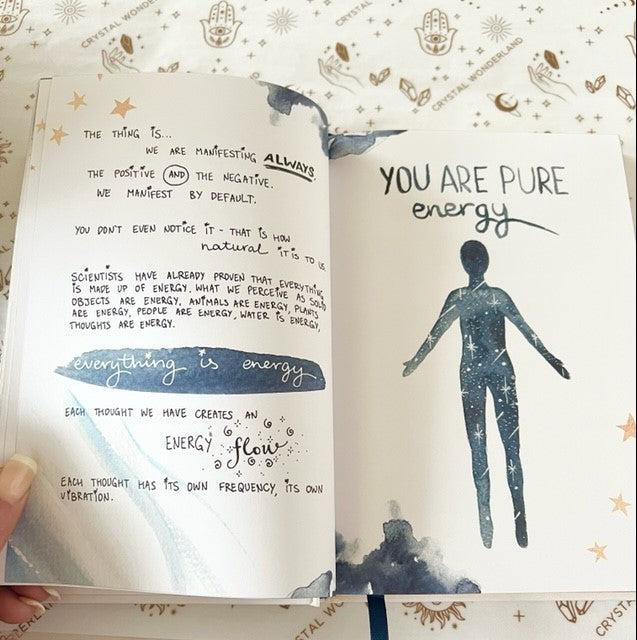 CRYSTAL WONDERLAND
CRYSTAL
CRYSTAL WONDERLAND
THE THING IS...
WE ARE MANIFESTING ALWAYS.
THE POSITIVE AND THE NEGATIVE.
WE MANIFEST BY DEFAULT.
YOU DON'T EVEN NOTICE IT - THAT IS HOW
natural IT IS TO US.
SCIENTISTS HAVE ALREADY PROVEN THAT EVERYTHING
IS MADE UP OF ENERGY. WHAT WE PERCEIVE AS SOLID
OBJECTS ARE ENERGY. ANIMALS ARE ENERGY, PLANTS
ARE ENERGY, PEOPLE ARE ENERGY, WATER IS ENERGY,
THOUGHTS ARE ENERGY.
everything is energy
EACH THOUGHT WE HAVE CREATES AN
ENERGY flow
EACH THOUGHT HAS ITS OWN FREQUENCY, ITS OWN
VIBRATION.
YOU ARE PURE
energy
CRYSTAL